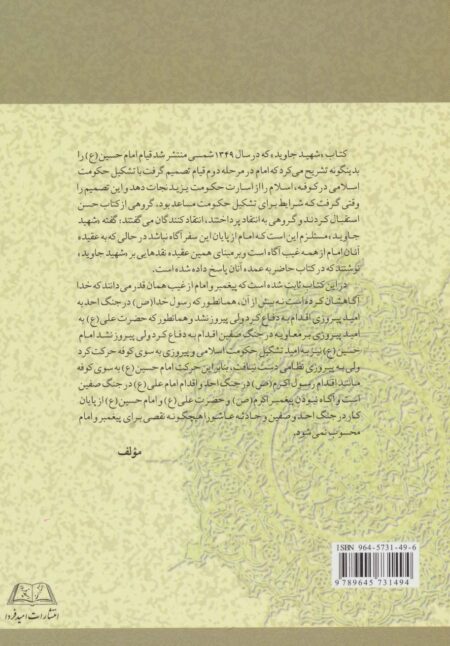 کتاب «شهید جاوید» که در سال ۱۳۴۹ شمسی منتشر شد قیام امام حسین (ع) را
بدینگونه تشریح می‌کرد که امام در مرحله دوم قیام تصمیم گرفت با تشکیل حکومت
اسلامی در کوفه، اسلام را از اسارت حکومت یزید نجات دهد و این تصمیم را
وقتی گرفت که شرایط برای تشکیل حکومت مساعد بود، گروهی از کتاب حسن
استقبال کردند و گروهی به انتقاد پرداختند، انتقاد کنندگان می گفتند: گفته «شهید
جاوید» مستلزم این است که امام از پایان این سفر آگاه نباشد در حالی که به عقیده
آنان امام از همه غیب آگاه است و بر مبنای همین عقیده نقدهایی بر «شهید جاوید»
نوشتند که در کتاب حاضر به عمده آنان پاسخ داده شده است.
در این کتاب ثابت شده است که پیغمبر و امام از غیب همان قدر می دانند که خدا
آگاهشان کرده است نه بیش از آن، همانطور که رسول خدا (ص) در جنگ احد به
امید پیروزی اقدام به دفاع کرد ولی پیروز نشد و همانطور که حضرت علی (ع) به
امید پیروزی بر معاویه در جنگ صفین اقدام به دفاع کرد ولی پیروز نشد امام
حسین (ع) نیز به امید تشکیل حکومت اسلامی و پیروزی به سوی کوفه حرکت کرد
ولی به پیروزی نظامی دست نیافت، بنابر این حرکت امام حسین (ع) به سوی کوفه
مانند اقدام رسول اکرم (ص) در جنگ احد و اقدام امام علی (ع) در جنگ صفین
است و آگاه نبودن پیغمبر اکرم (ص) و حضرت علی (ع) و امام حسین (ع) از پایان
کار در جنگ احد و صفین و حادثه عاشورا هیچگونه نقصی برای پیغمبر و امام
محسوب نمی شود.
مؤلف
ISBN 964-5731-49-6
9 789645 731494
انتشارات امید فردا